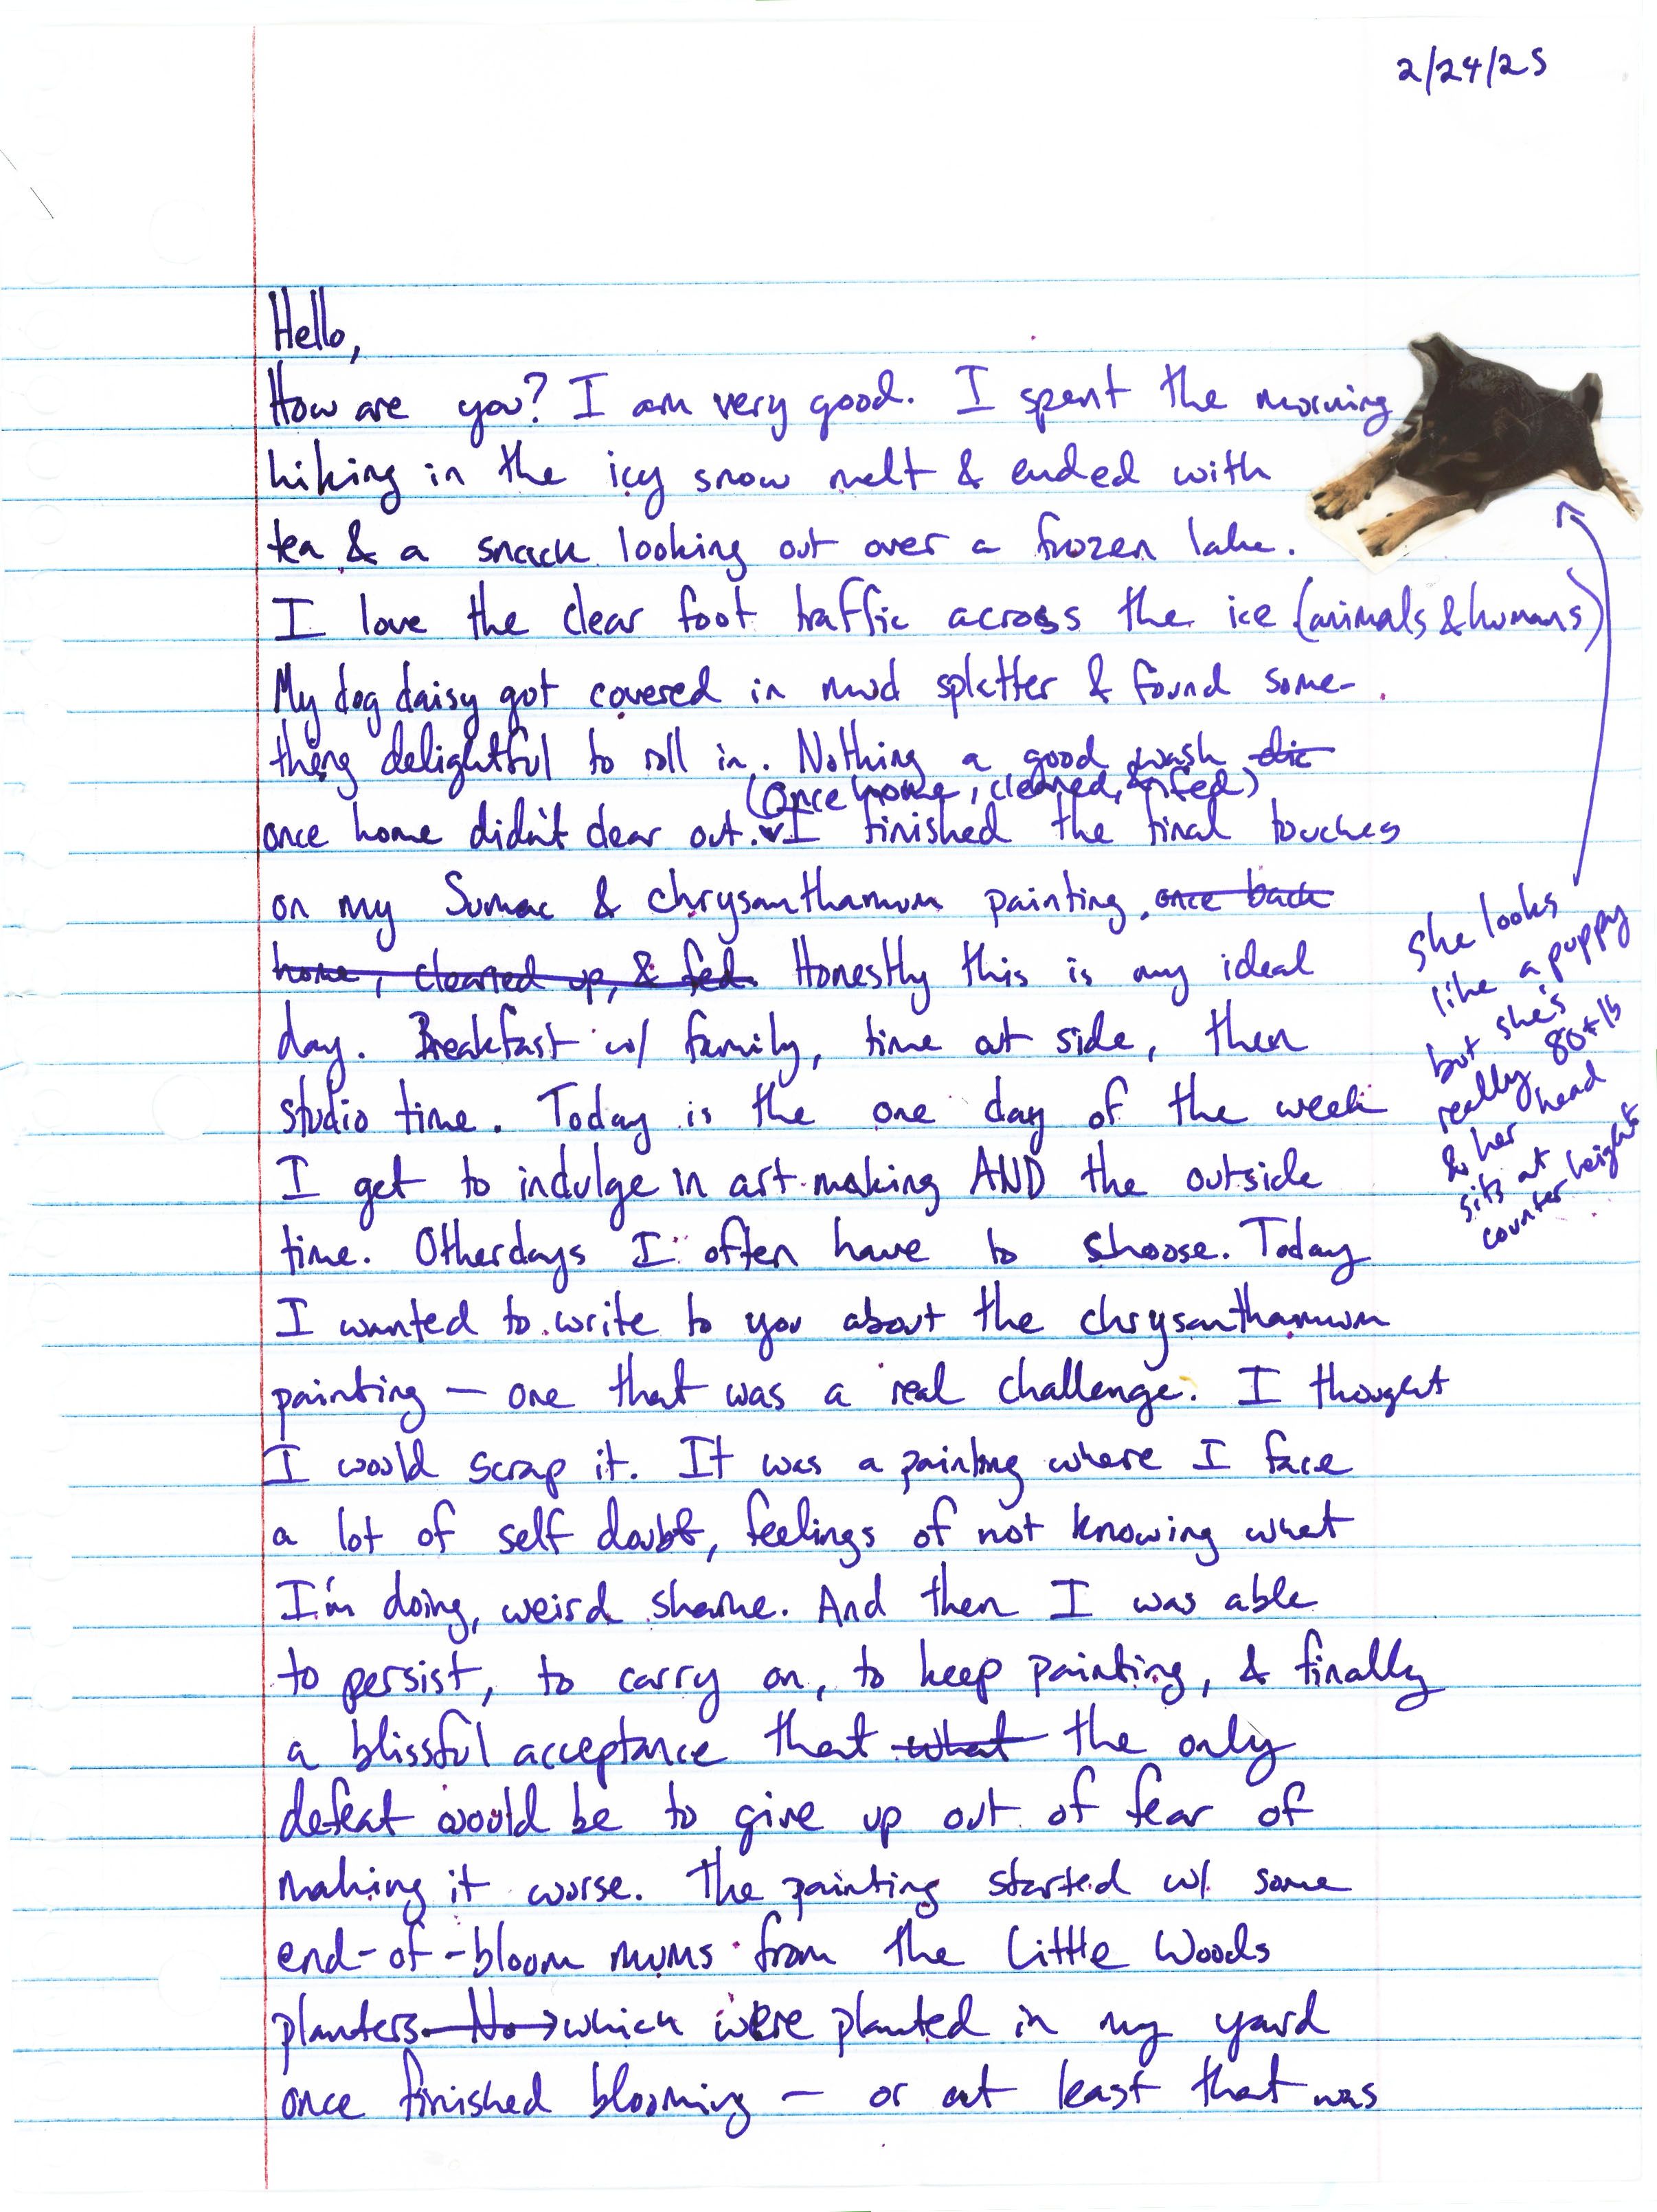 2/24/25
Hello,
How are you? I am very good. I spent the morning
hiking in the icy snow melt & ended with
tea & a snack looking out over a frozen lake.
I love the clear foot traffic across the ice (animals & humans)
My dog daisy got covered in mud splatter & found some-
thing delightful to roll in. Nothing a good wash dic
(Once home, cleaned, & fed)
once home didn't clear out. I finished the final touches
on my Sumac & chrysanthamum painting. once back
home, cleaned up, & fed. Honestly this is my ideal
day. Breakfast w/ family, time out side, then
studio time. Today is the one day of the week
I get to indulge in art making AND the outside
time. Otherdays I often have to shoose. Today
I wanted to write to you about the chrysanthamum
painting — one that was a real challenge. I thought
I would scrap it. It was a painting where I face
a lot of self doubt, feelings of not knowing what
I'm doing, weird shame. And then I was able
to persist, to carry on, to keep painting, & finally
a blissful acceptance that what the only
defeat would be to give up out of fear of
making it worse. The painting started w/ some
end-of-bloom mums from the Little Woods
planters. No → which were planted in my yard
once finished blooming — or at least that was
she looks
like a puppy
but she's
really 80+lb
& her head
sits at
counter height